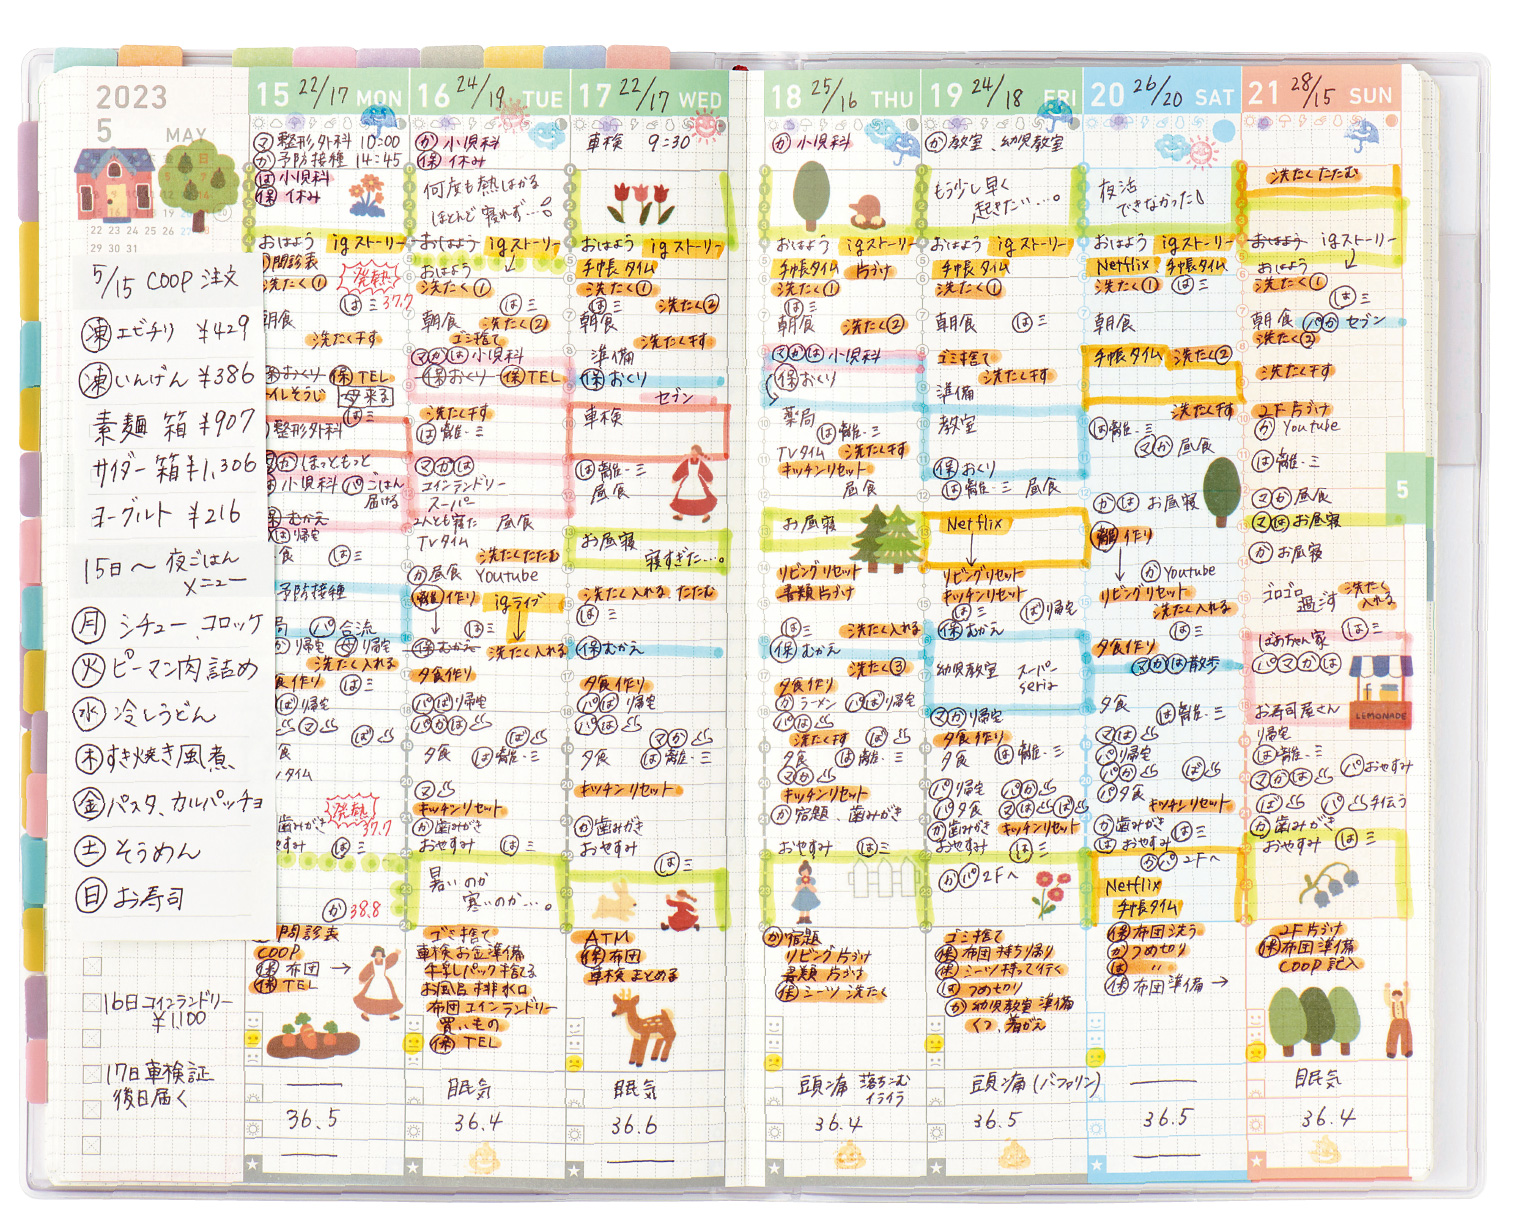 2023
5 MAY
22 23 24 25 26
29 30 31
5/15 COOP 注文
凍 エビチリ ¥429
凍 いんげん ¥386
素麺 箱 ¥907
サイダー 箱 ¥1,306
ヨーグルト ¥216
15日〜 夜ごはん
メニュー
月 シチュー、コロッケ
火 ピーマン肉詰め
水 冷しうどん
木 すき焼き風煮
金 パスタ、カルパッチョ
土 そうめん
日 お寿司
16日 コインランドリー
¥1,100
17日 車検証
後日届く
15 22/17 MON
マ 整形外科 10:00
か 予防接種 14:45
は 小児科
保 休み
おはよう igストーリー
問診表
発熱
洗たく①
は 三 37.7
朝食
洗たく干す
保 おくり 保 TEL
イレそうじ 母来る
は 三
整形外科
マ か ほっともっと
は 小児科 パ ごはん
届ける
保 むかえ
は 帰宅
食 は 三
予防接種
局 パ 合流
か 帰宅 母 帰宅
洗たく入れる
食作り は 三
は 帰宅
マ
ぱ
食
タイム
発熱
37.7
歯みがき
やすみ は 三
か 38.8
問診表
COOP
保 布団 →
保 TEL
36.5
16 24/19 TUE
か 小児科
保 休み
何度も熱はかる
ほとんど寝れず…
おはよう igストーリー
おはよう
洗たく①
朝食 洗たく②
ゴミ捨て
マ か は 小児科
保 おくり 保 TEL
洗たく干す
は 離・三
マ か は
コインランドリー
スーパー
2人とも寝た 昼食
TVタイム
洗たくたたむ
か 昼食 Youtube
離 作り igライブ
は 三
保 むかえ
洗たく入れる
夕食作り
パ ぱ 帰宅
パ か は
ぱ
夕食 は 離・三
マ
キッチンリセット
か 歯みがき
おやすみ は 三
暑いのか
寒いのか…。
ゴミ捨て
車検お金準備
牛乳パック捨てる
お風呂 排水口
布団 コインランドリー
買いもの
保 TEL
眠気
36.4
17 22/17 WED
車検 9:30
おはよう igストーリー
手帳タイム
洗たく①
は 三 洗たく②
朝食
洗たく干す
準備
保 おくり
セブン
車検
は 離・三
昼食
お昼寝
寝すぎた…。
洗たく入れる、たたむ
は 三
保 むかえ
夕食作り
パ ぱ 帰宅
パ は
マ か
夕食 は 離・三
キッチンリセット
か 歯みがき
おやすみ
は 三
ATM
保 布団
車検まとめる
眠気
36.6
18 25/16 THU
か 小児科
おはよう igストーリー
手帳タイム 片づけ
洗たく①
は 三
朝食 洗たく②
マ か は 小児科
保 おくり
薬局
は 離・三
TVタイム 洗たく干す
キッチンリセット
昼食
お昼寝
リビングリセット
書類片づけ
は 三 洗たく入れる
保 むかえ
洗たく③
夕食作り
か ラーメン パ ぱ 帰宅
パ は
洗たく干す ぱ
夕食 は 離・三
マ か
キッチンリセット
か 宿題、歯みがき
おやすみ は 三
か 宿題
リビング片づけ
書類片づけ
保 シーツ洗たく
頭痛 落ちこむ
イライラ
36.4
19 24/18 FRI
か 教室、幼児教室
もう少し早く
起きたい…。
おはよう igストーリー
手帳タイム
洗たく①
朝食 は 三
ゴミ捨て
洗たく干す
準備
教室
保 おくり
は 離・三 昼食
Netflix
リビングリセット
キッチンリセット
は 三 ぱ 帰宅
保 むかえ
幼児教室 スーパー
seria
マ か 帰宅
夕食作り
夕食 は 離・三
パ 帰宅 パ か
パ 夕食 マ は ぱ
か 歯みがき キッチンリセット
おやすみ は 三
か パ 2Fへ
ゴミ捨て
保 布団 持ち帰り
保 シーツ持って行く
は つめ切り
か 幼児教室 準備
くつ、着がえ
頭痛 (バファリン)
36.5
20 26/20 SAT
夜活
できなかった
おはよう igストーリー
Netflix、手帳タイム
洗たく① は 三
朝食
手帳タイム 洗たく②
洗たく干す
は 離・三
マ か 昼食
か は お昼寝
離 作り
か Youtube
リビングリセット
洗たく入れる
は 三
夕食作り
マ か は 散歩
夕食
は 離・三
マ は
パ 帰宅
パ か ぱ
パ 夕食
キッチンリセット
か 歯みがき は 三
は おやすみ
か パ 2Fへ
Netflix
手帳タイム
保 布団 洗う
か つめ切り
は 〃
保 布団準備 →
36.5
21 28/15 SUN
洗たくたたむ
おはよう igストーリー
おはよう
洗たく①
は 三
朝食 パ か セブン
洗たく②
洗たく干す
2F片づけ
か Youtube
は 離・三
マ か 昼食
マ は お昼寝
か お昼寝
ゴロゴロ 過ごす
洗たく入れる
ばあちゃん家 は 三
パ マ か は
LEMONADE
お寿司屋さん
帰宅
は 離・三
マ か は パ おやすみ
ぱ パ 手伝う
か 歯みがき
おやすみ は 三
2F片づけ
保 布団準備
COOP 記入
眠気
36.4
5